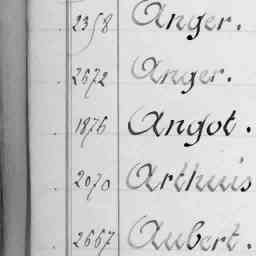 2358 Anger.
2672 Anger.
1876 Angot.
2070 Arthuis
2667 Aubert.